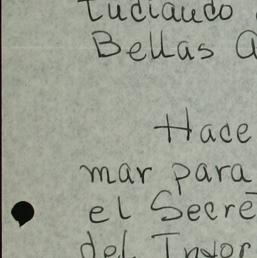 tudiando
Bellas A
Hace
mar para
el Secre
del Invor